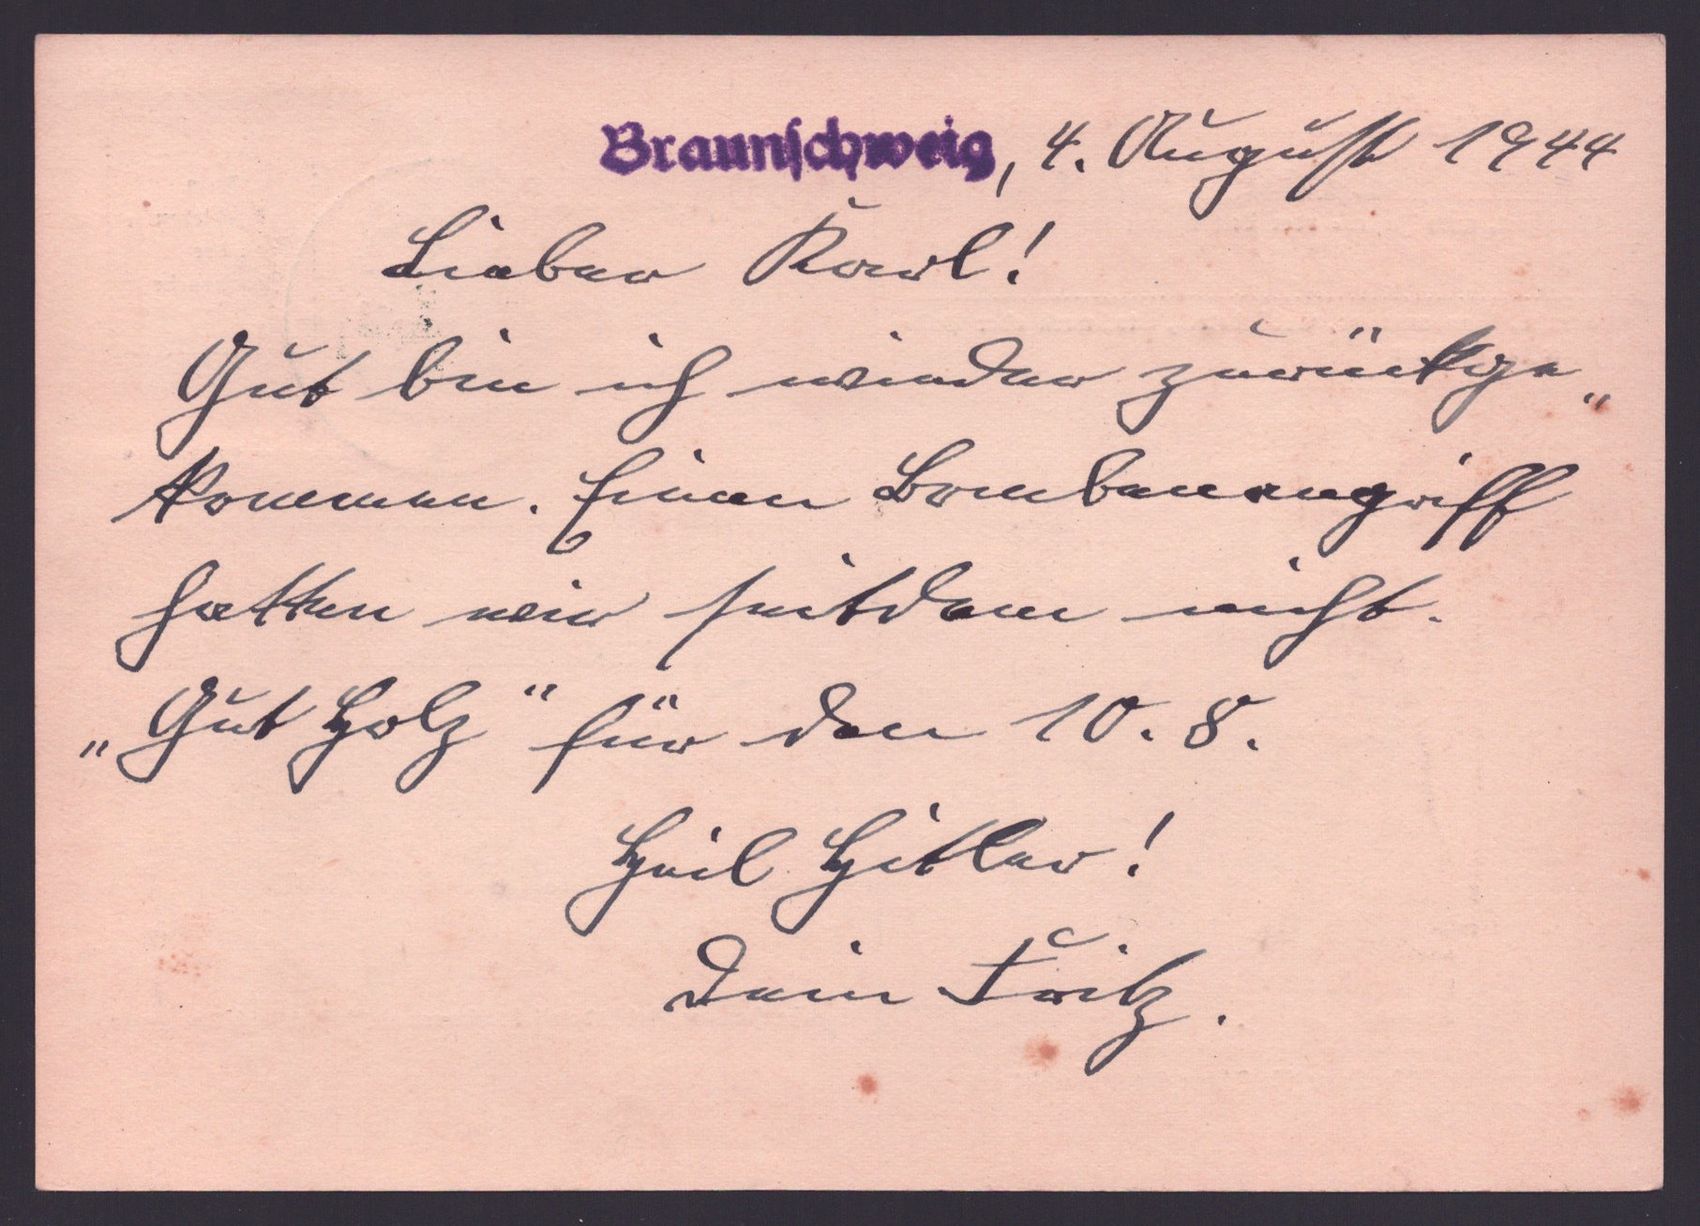 Braunschweig, 4. August 1944
Lieber Karl!
Gut bin ich wieder zurückge„
kommen. Einen Bombenangriff
hatten wir seitdem nicht.
„Gut Holz" für den 10. 8.
Heil Hitler!
Dein Fritz.